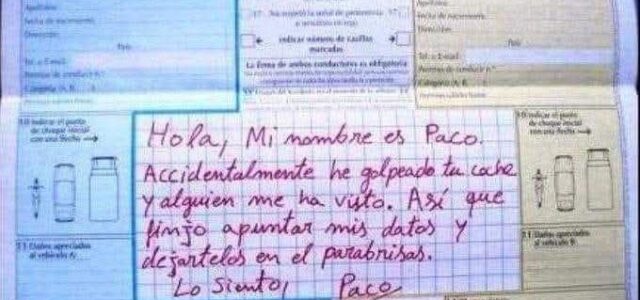 Apellidos:
Fecha de nacimiento:
Dirección:
País:
Tel. o E-mail:
Permiso de conducir n.º
Categoría (A, B, ...)
17
17
indicar número de casillas
marcadas
La firma de ambos conductores es obligatoria
País:
Tel. o E-mail:
Permiso de conducir n.º
Categoría (A, B
10 Indicar el punto
de choque inicial
con una flecha
10 Indicar el punto
de choque inicial
con una flecha
Hola, Mi nombre es Paco.
Accidentalmente he golpeado tu coche
y alguien me ha visto. Así que
finjo apuntar mis datos y
dejartelos en el parabrisas.
Lo Siento, Paco
11 Daños apreciados
al vehículo A:
11 Daños apreciados
al vehículo B: